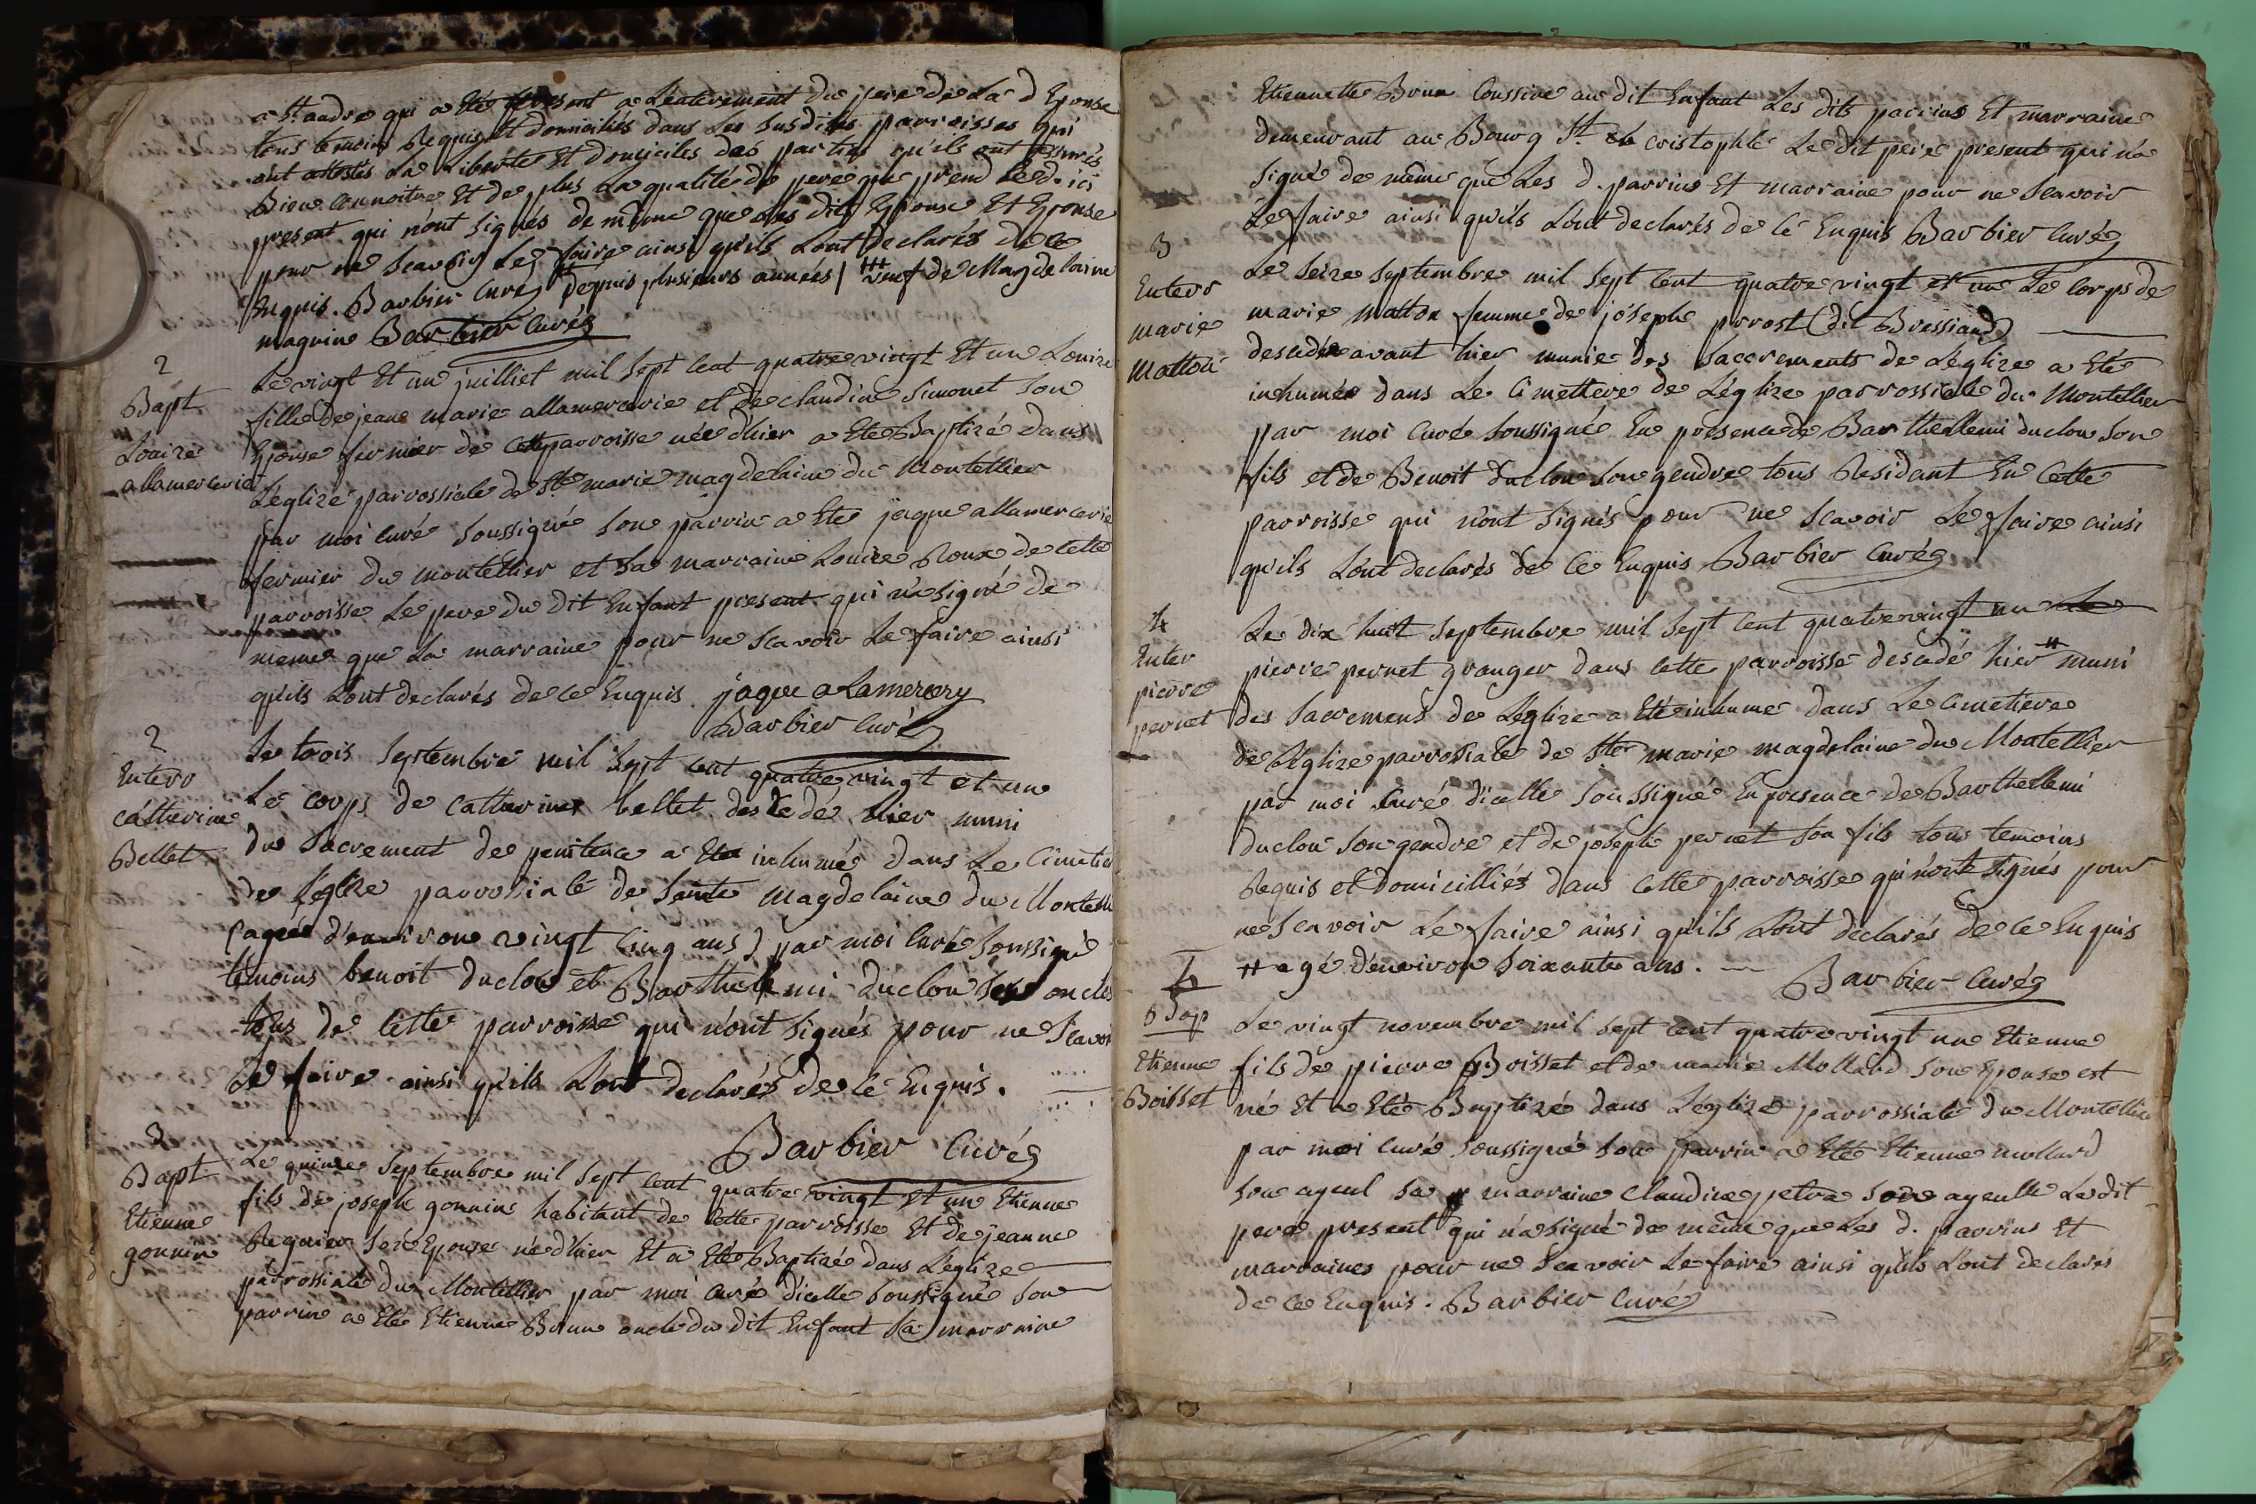 a St. andre qui a Eté present a Lenterement du pere de La d Epouse
tous temoins Requis Et domiciliés dans Les susdites parroisses qui
ont attestés La Liberté Et domiciles des parties qu'ils ont assurés
Bien connoitre Et de plus La qualité de pere que prend Le d. ici
present qui n'ont signés de même que Les dits Epoux Et Epouse
pour ne scavoir Le faire ainsi qu'ils Lont declarés de ce
Enquis. Barbier Curé depuis plusieurs années / veuf de Magdelaine
maguine Barbier Curé
2
Bapt
Louise
allamercerie
Le vingt Et un juilliet mil sept cent quatre vingt Et un Louise
fille de jeane marie allamercerie et de claudine Simonet son
Epouse fermier de cette parroisse née dhier a Eté Baptizé dans
Léglize parrossiale de Ste marie magdelaine du Montellier
par moi curé soussigné son parrin a Eté jaque allamercerie
fermier du montellier et sa marraine Louise Roux de cette
parroisse Le pere du dit Enfant present qui n'a signé de
meme que La marraine pour ne scavoir Le faire ainsi
qu'ils Lont declarés de ce Enquis jaque alamercery
Barbier Curé
2
Enterr
catherine
Bellet
Le trois septembre mil sept cent quatre vingt et un
Le corps de catherine bellet descedé hier muni
du sacrement de penitence a Eté inhumé dans Le Cimetie
de Léglize parrossiale de Sainte Magdelaine du Montell
(agée d'environ vingt cinq ans) par moi Curé soussigné
temoins benoit duclou et Barthelemi duclou ses oncles
tous de cette parroisse qui n'ont signés pour ne scavoi
Le faire ainsi qu'ils Lont declarés de ce Enquis.
Barbier Curé
3
Bapt
Etienne
gonnin
Le quinze septembre mil sept cent quatre vingt et un Etienne
fils de joseph gonnin habitant de cette parroisse Et de jeanne
Reguier son Epouse né d'hier Et a Eté Baptizé dans Léglize
parrossiale du Montellier par moi curé dicelle soussigné son
parrin a Eté Etienne Brun oncle du dit Enfant sa marraine
Etiennette Brun Coussine au dit Enfant Les dits parrins Et marraine
demeurant au Bourg St. cristophle Le dit pere present qui n'a
signé de même que Les d. parrins Et marraine pour ne scavoir
Le faire ainsi qu'ils Lont declarés de ce Enquis Barbier Curé
3
Enterr
marie
Matton
Le seize septembre mil sept cent quatre vingt et un Le corps de
marie Matton femme de joseph prrost (dit Bressiand)
descedée avant hier munie des saccrements de Léglize a Eté
inhumée dans Le Cimettere de Léglize parrossiale du Montellier
par moi curé soussigné En présence de Barthellemi duclou son
fils et de Benoit duclou son gendre tous Residant En cette
parroisse qui n'ont signés pour ne scavoir Le faire ainsi
qu'ils Lont declarés de ce Enquis Barbier Curé
4
Enter
pierre
pernet
Le dix huit septembre mil sept cent quatre vingt un
pierre pernet granger dans cette parroisse descedé hier # muni
des sacremens de Léglize a Eté inhumé dans Le Cimetiere
de Léglize parrossiale de Ste marie magdelaine du Montellier
par moi curé dicelle soussigné En presence de Barthellemi
duclou son gendre et de joseph pernet son fils tous temoins
Requis et domicilliés dans cette parroisse qui n'ont signés pour
ne scavoir Le faire ainsi qu'ils Lont declarés de ce Enquis
# agé d'environ soixante ans. Barbier Curé
4
Bap
Etienne
Boisset
Le vingt novembre mil sept cent quatre vingt un Etienne
fils de pierre Boisset et de marie Mollard son Epouse est
né Et a Eté Baptizé dans Léglize parrossiale du Montellier
par moi curé soussigné son parrin a Eté Etienne mollard
son ayeul sa marraine claudine petra son ayeulle Le dit
pere present qui n'a signé de même que Les d. parrins Et
marraines pour ne scavoir Le faire ainsi qu'ils Lont declarés
de ce Enquis. Barbier Curé